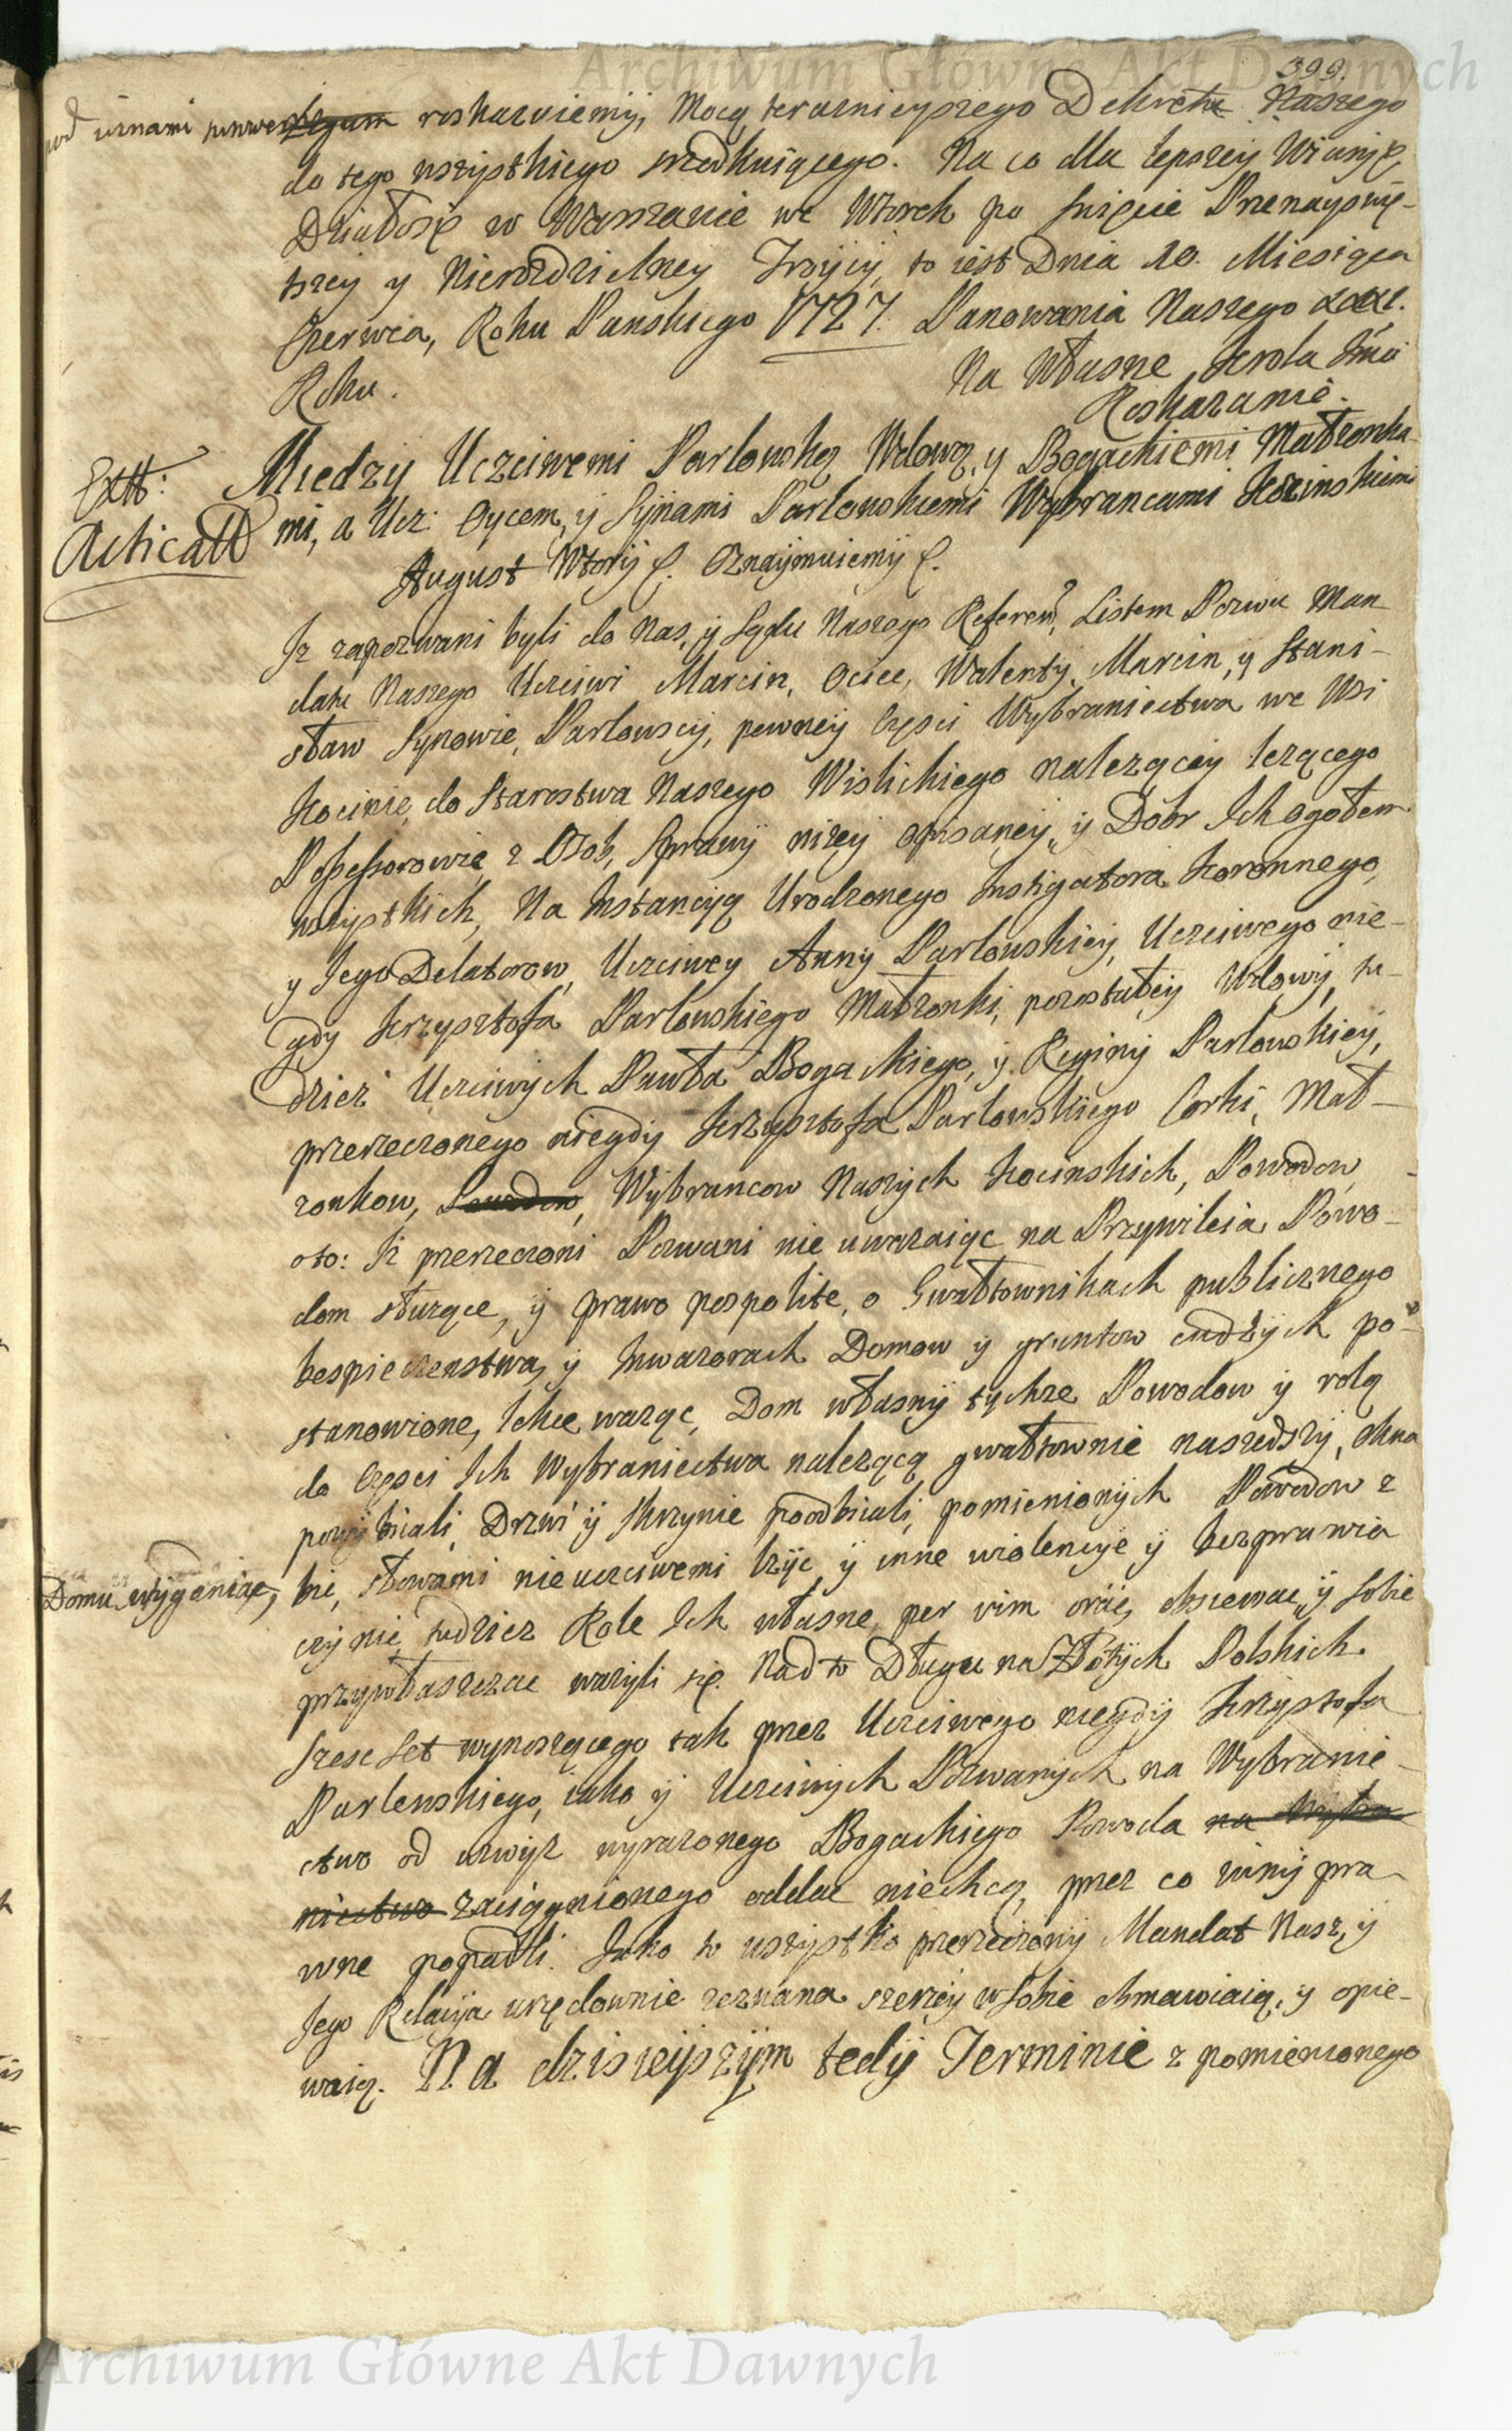 Archiwum Główne Akt Dawnych
399.
pod winami
roskazuiemÿ, Mocą teraznieyszego Dekretu Naszego
do tego wszystkiego srzodkuiącego. Na co dla lepszeÿ Wiarÿ &
Działosię w Warszawie we Wtorek po Swięcie Przenayswię-
tszeÿ y Nierozdzielney Troÿcÿ, to iest Dnia 10. Miesiąca
Czerwca, Roku Panskiego 1727. Panowania Naszego
Roku.
Na Własne Krola Jmci
Roskazanie.
Extt:
Acticatt
Miedzÿ Uczciwemi Parlowską Wdową, y Bogackiemi Małzonka-
mi, a Ucz: Oycem, ÿ Sÿnami Parlowskiemi Wybrancami Kocinskiemi
August Wtorÿ &. Oznaÿmuiemÿ &.
Jz zapozwani byli do Nas, ÿ Sądu Naszego Referen, Listem Pozwu Man
datu Naszego Uczciwi Marcin, Ociec, Walentÿ, Marcin, ÿ Stani-
sław Synowie, Parlowscÿ, pewneÿ Częsci Wybraniectwa we Wsi
Kocinie, do Starostwa Naszego Wislickiego naleząceÿ lezącego
Possessorowie, z Osob, Sprawÿ nizeÿ opisaneÿ, ÿ Dobr Jch ogołem
wszystkich, Na Instancÿą Urodzonego Instigatora Koronnego,
y Jego Delatorow, Uczciwey Annÿ Parlowskieÿ, Uczciwego nie-
gdy Krzysztofa Parlowskiego Małzonki, pozostałeÿ Wdowÿ, tu-
dziez Uczciwÿch Pawła Bogackiego, ÿ Reginÿ Parlowskieÿ,
przerzeczonego niegdÿ Krzysztofa Parlowskiego Corki, Mał-
zonkow, Powodow, Wÿbrancow Naszÿch Kocinskich, Powodow,
oto: Jz przerzeczoni Pozwani nie uwazaiąc na Przywileia Powo-
dom słuzące, ÿ prawo pospolite, o Gwałtownikach publicznego
bespieczenstwa, ÿ Inwazorach Domow ÿ gruntow cudzÿch po-
stanowione, lekce waząc, Dom własnÿ tychze Powodow ÿ rolą
do Częsci Jch Wybraniectwa nalezącą gwałtownie naszedszÿ, okna
powÿbiiali, Drzwi ÿ skrzynie poodbiiali, pomienionÿch Powodow z
Domu wÿganiac,
bic, słowami nieuczciwemi lzÿc, ÿ inne wiolencÿe ÿ bezprawia
czÿnic, tudziez Role Jch własne, per vim orac, obsiewac, ÿ sobie
przywłaszczac wazyli się. Nadto Długu na Złotÿch Polskich
szesc set wynoszącego tak przez Uczciwego niegdÿ Krzysztofa
Parlowskiego, iako ÿ Uczciwÿch Pozwanÿch na Wybranie-
ctwo od wzwÿz wyrazonego Bogackiego Powoda na Wybra
niectwo zaciągnionego oddac niechcą, przez co winÿ pra-
wne popadli. Jako to wszystko przerzeczonÿ Mandat Nasz, ÿ
Jego Relacÿa urzędownie zeznana szerzeÿ w sobie obmawiaią, y opie-
waią. Na dzisieÿszÿm tedÿ Terminie z pomienionego
Archiwum Główne Akt Dawnych